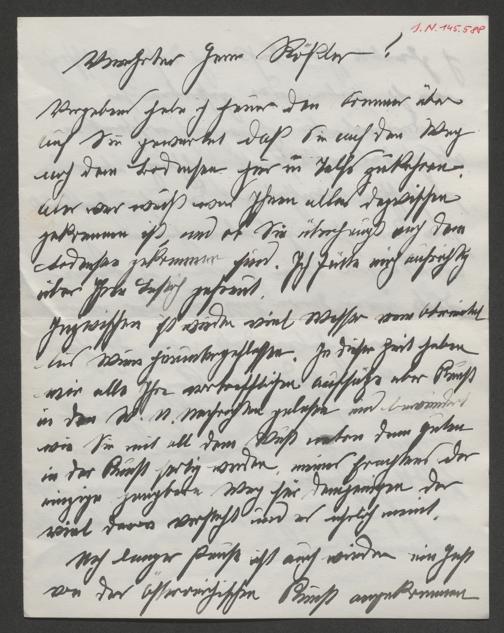 J. N. 145.588
Verehrter Herr Rößler!
Vergebens habe ich heuer den Sommer über
auf Sie gewartet daß Sie auf dem Weg
nach dem Bodensee hier in Telfs zukehren.
Aber wer weiß was Ihnen alles dazwischen
gekommen ist und ob Sie überhaupt nach dem
Bodensee gekommen sind. Ich hätte mich aufrichtig
über Ihren Besuch gefreut.
Inzwischen ist wieder viel Wasser vom
bis Wien hinuntergeflossen. In dieser Zeit haben
wir alle Ihre vortrefflichen Aufsätze über Kunst
in den N. N. Nachrichten gelesen und bewundert
wie Sie mit all dem Wust neben dem guten
in der Kunst fertig werden, meines Erachtens der
einzige gangbare Weg für denjenigen der
viel davon versteht und es ehrlich meint.
Nach langer Pause ist auch wieder ein Heft
von der österreichischen Kunst angekommen